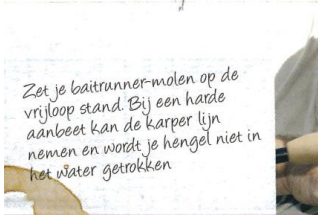 Zet je baitrunner-molen op de
vrijloop stand. Bij een harde
aanbeet kan de karper lijn
nemen en wordt je hengel niet in
het water getrokken